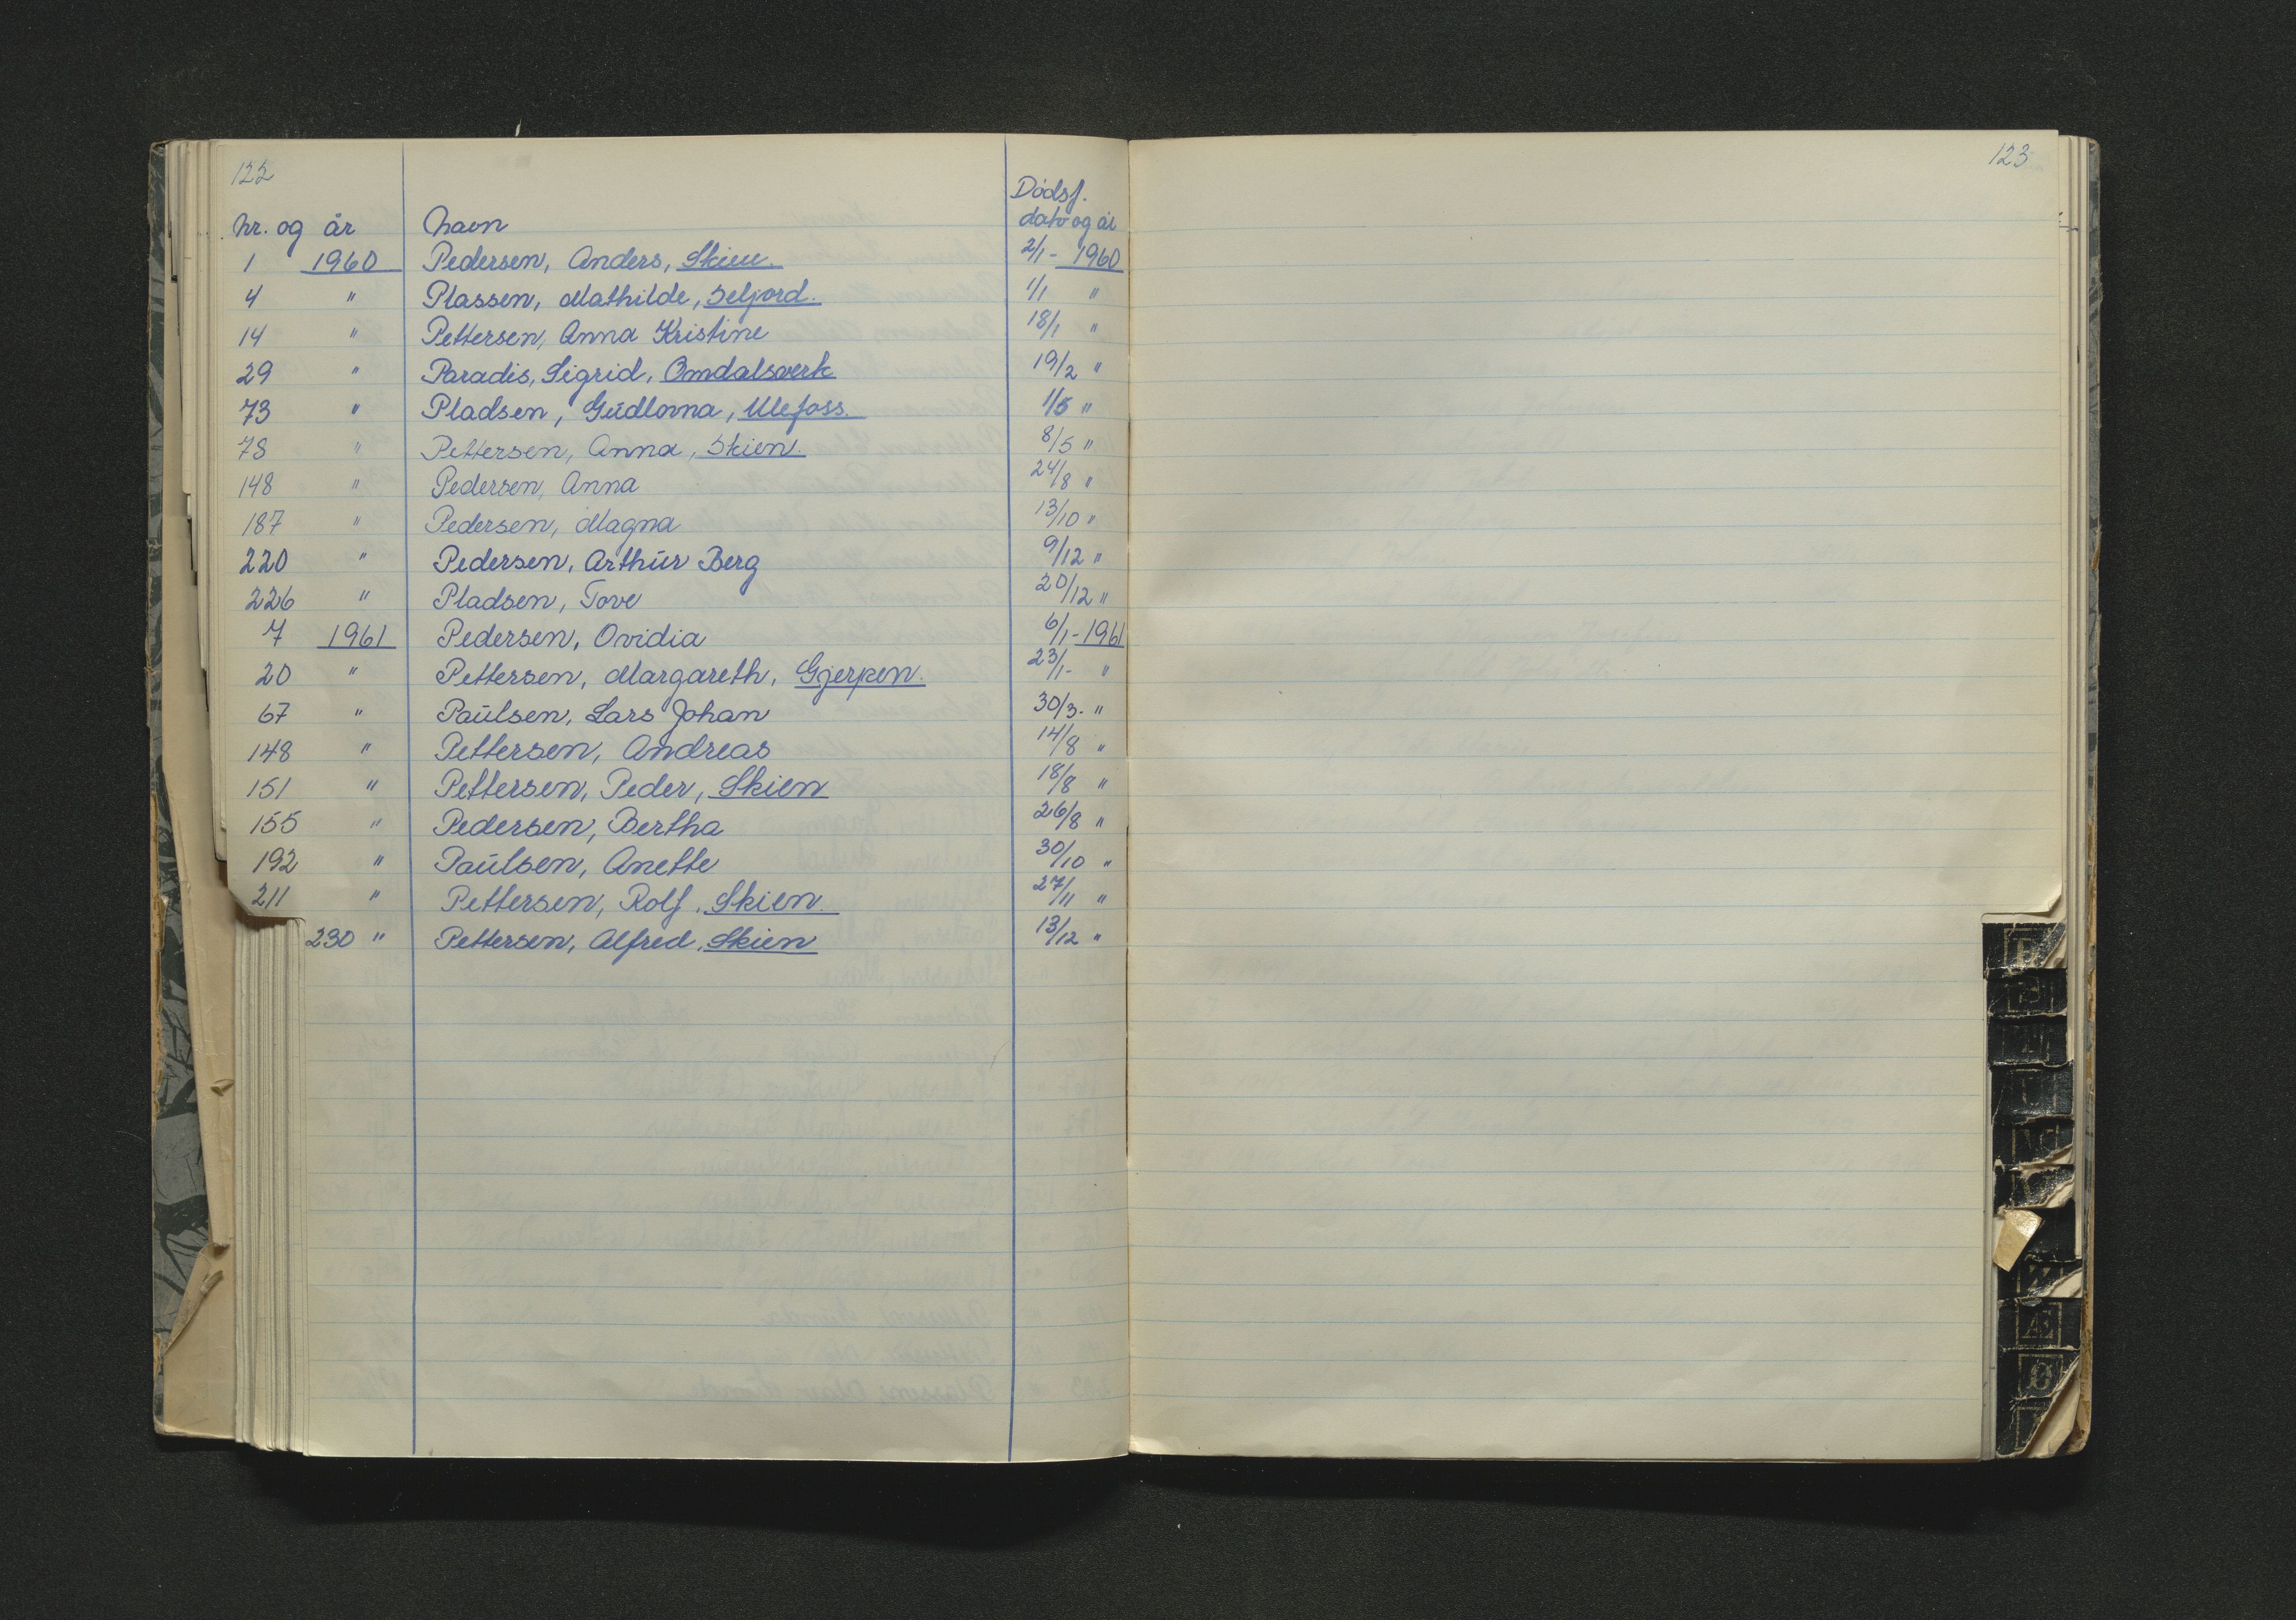 122
123
Dødsf.
Nr. og år Navn dato og år
1 1960 Pedersen, Anders, Skien. 2/1 - 1960
4 " Plassen, Mathilde, Seljord. 1/1 "
14 " Pettersen, Anna Kristine 18/1 "
29 " Paradis, Sigrid, Omdalsverk 19/2 "
73 " Pladsen, Gudlovna, Ulefoss. 1/5 "
78 " Pettersen, Anna, Skien. 8/5 "
148 " Pedersen, Anna 24/8 "
187 " Pedersen, Magna 13/10 "
220 " Pedersen, Arthur Berg 9/12 "
226 " Pladsen, Tove 20/12 "
7 1961 Pedersen, Ovidia 6/1 - 1961
20 " Pettersen, Margareth, Gjerpen. 23/1 - "
67 " Paulsen, Lars Johan 30/3 - "
148 " Pettersen, Andreas 14/8 "
151 " Pettersen, Peder, Skien 18/8 "
155 " Pedersen, Bertha 26/8 "
192 " Paulsen, Anette 30/10 "
211 " Pettersen, Rolf, Skien. 27/11 "
230 " Pettersen, Alfred, Skien 13/12 "
Æ
Ø